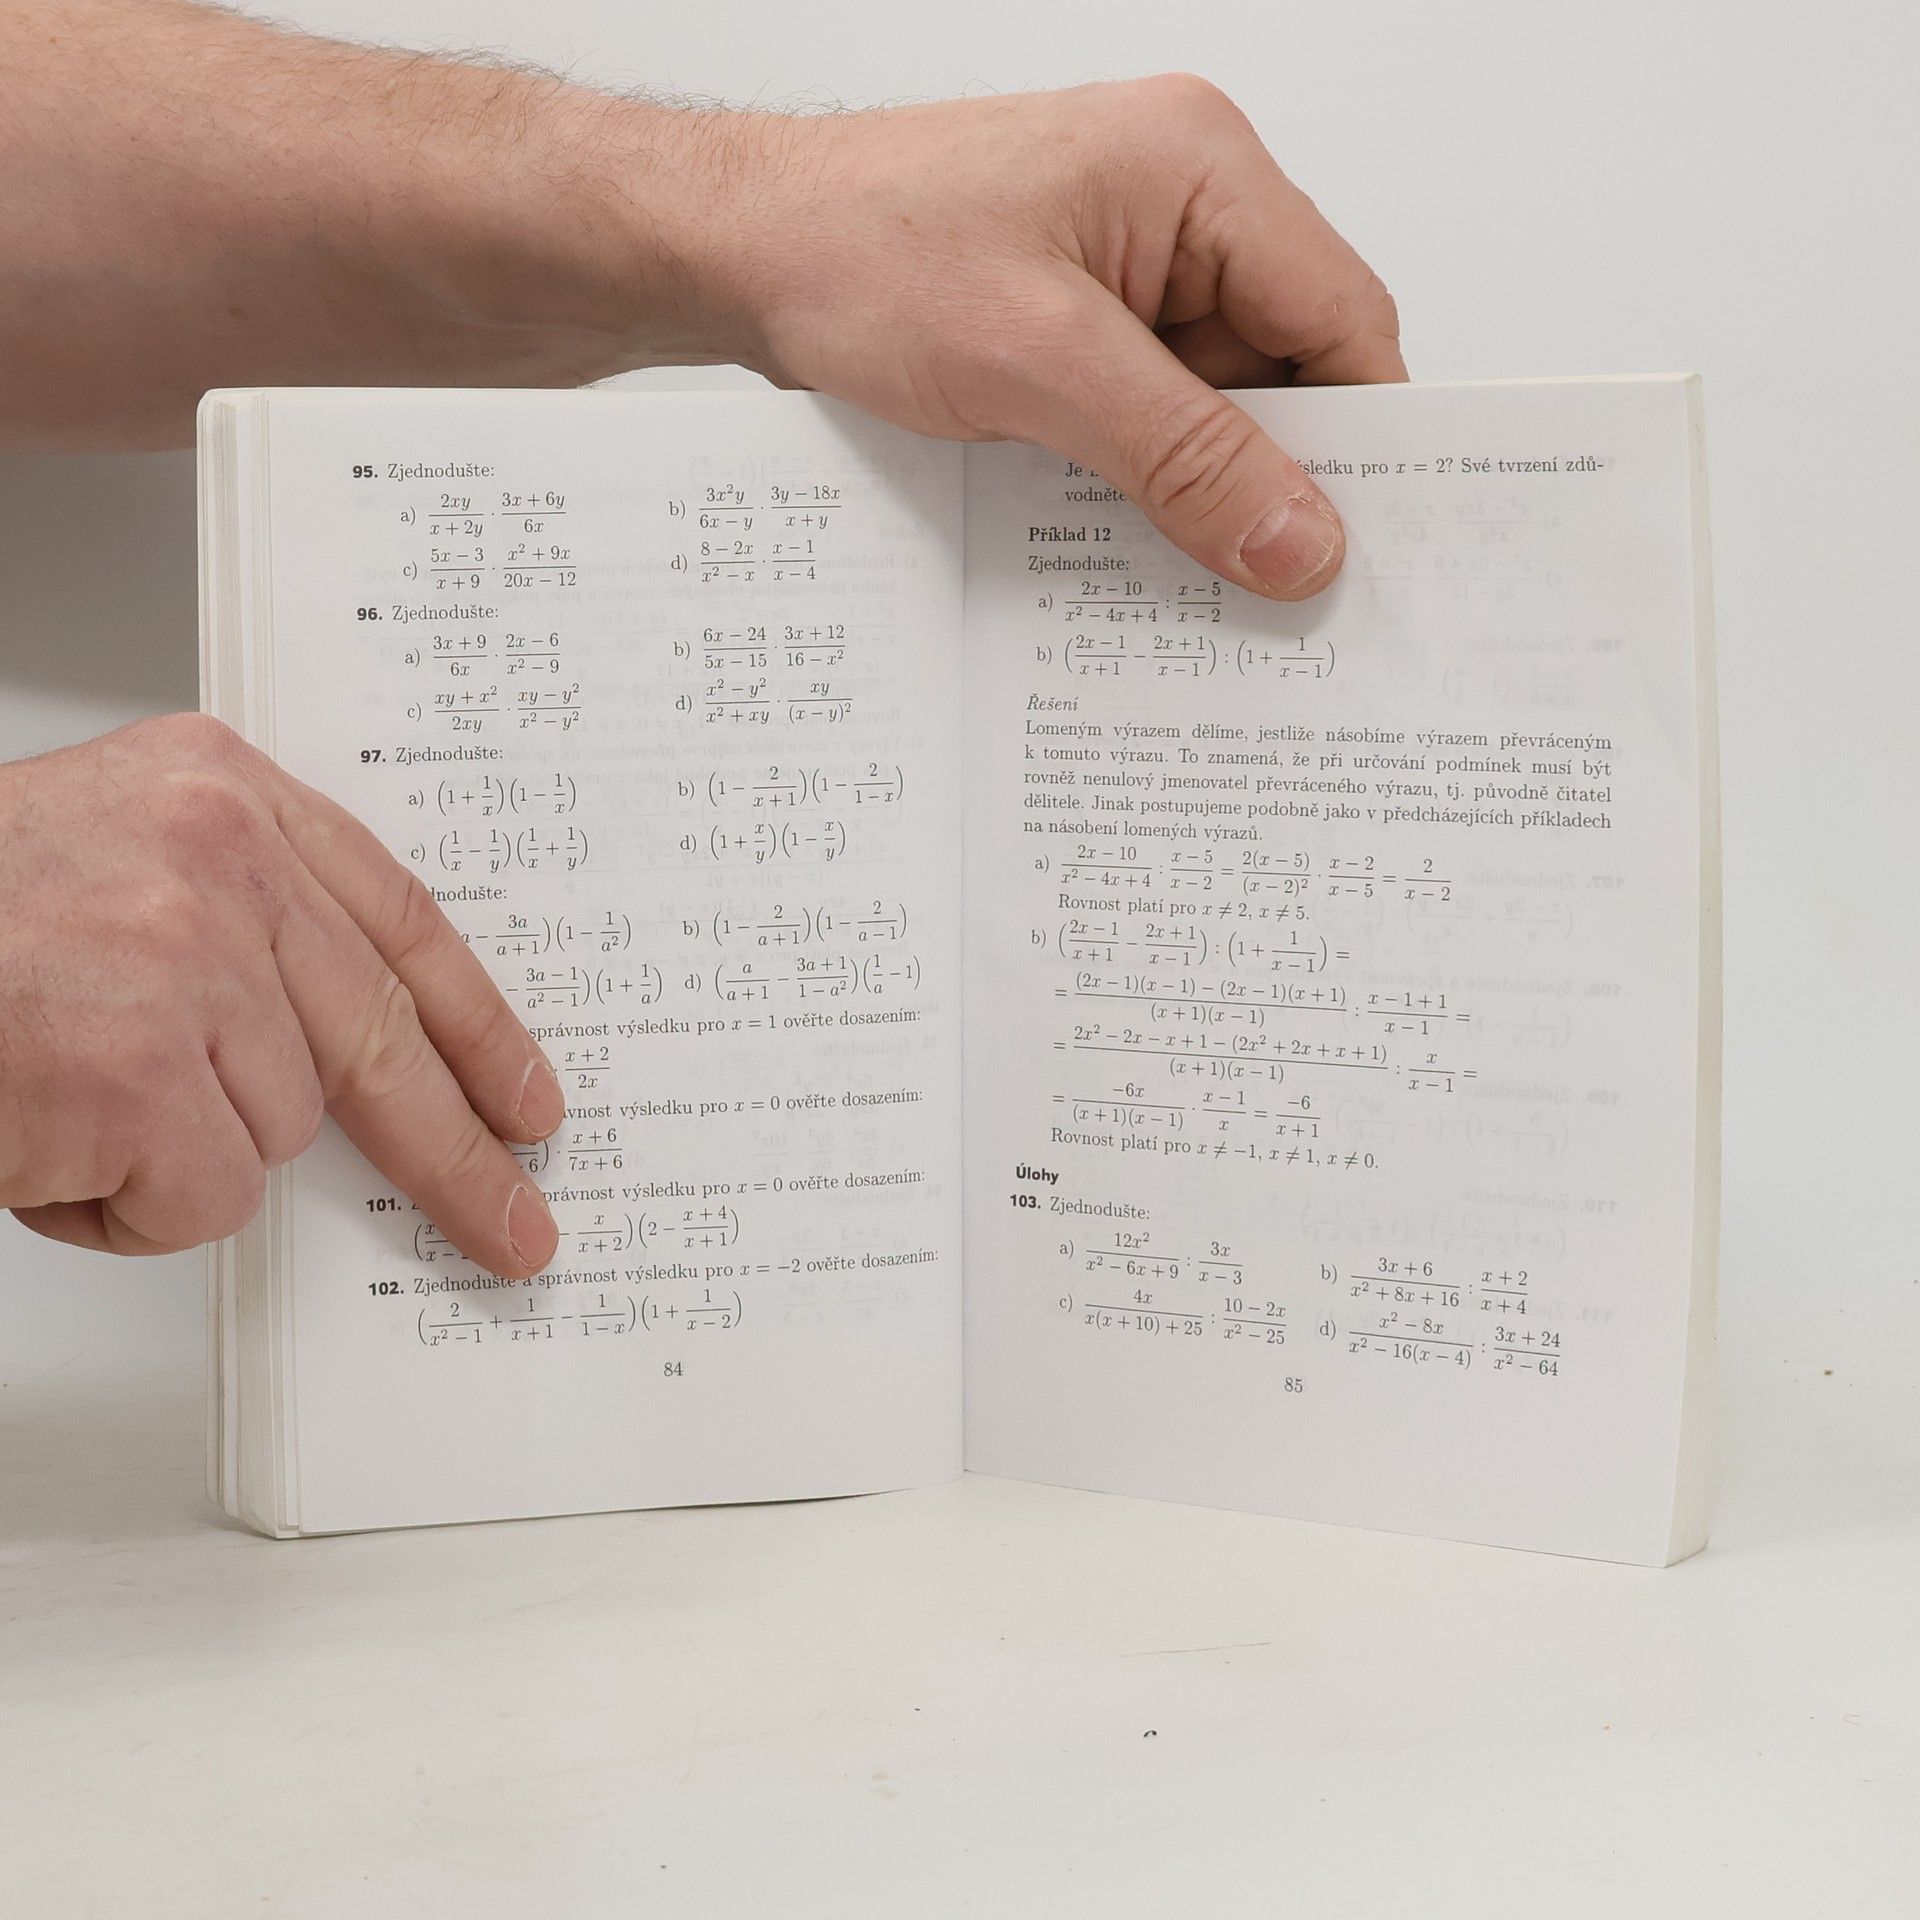 95. Zjednodušte:
a) \frac{2xy}{x + 2y} · \frac{3x + 6y}{6x} b) \frac{3x^2y}{6x − y} · \frac{3y − 18x}{x + y}
c) \frac{5x − 3}{x + 9} · \frac{x^2 + 9x}{20x − 12} d) \frac{8 − 2x}{x^2 − x} · \frac{x − 1}{x − 4}
96. Zjednodušte:
a) \frac{3x + 9}{6x} · \frac{2x − 6}{x^2 − 9} b) \frac{6x − 24}{5x − 15} · \frac{3x + 12}{16 − x^2}
c) \frac{xy + x^2}{2xy} · \frac{xy − y^2}{x^2 − y^2} d) \frac{x^2 − y^2}{x^2 + xy} · \frac{xy}{(x − y)^2}
97. Zjednodušte:
a) (1 + \frac{1}{x})(1 − \frac{1}{x}) b) (1 − \frac{2}{x + 1})(1 − \frac{2}{1 − x})
c) (\frac{1}{x} − \frac{1}{y})(\frac{1}{x} + \frac{1}{y}) d) (1 + \frac{x}{y})(1 − \frac{x}{y})
− \frac{3a}{a + 1})(1 − \frac{1}{a^2}) b) (1 − \frac{2}{a + 1})(1 − \frac{2}{a − 1})
− \frac{3a − 1}{a^2 − 1})(1 + \frac{1}{a}) d) (\frac{a}{a + 1} − \frac{3a + 1}{1 − a^2})(\frac{1}{a} − 1)
správnost výsledku pro x = 1 ověřte dosazením:
· \frac{x + 2}{2x}
výsledku pro x = 0 ověřte dosazením:
) · \frac{x + 6}{7x + 6}
101. správnost výsledku pro x = 0 ověřte dosazením:
− \frac{x}{x + 2})(2 − \frac{x + 4}{x + 1})
102. Zjednodušte a správnost výsledku pro x = −2 ověřte dosazením:
(\frac{2}{x^2 − 1} + \frac{1}{x + 1} − \frac{1}{1 − x})(1 + \frac{1}{x − 2})
84
Je výsledku pro x = 2? Své tvrzení zdů-
vodněte
Příklad 12
Zjednodušte:
a) \frac{2x − 10}{x^2 − 4x + 4} : \frac{x − 5}{x − 2}
b) (\frac{2x − 1}{x + 1} − \frac{2x + 1}{x − 1}) : (1 + \frac{1}{x − 1})
Řešení
Lomeným výrazem dělíme, jestliže násobíme výrazem převráceným
k tomuto výrazu. To znamená, že při určování podmínek musí být
rovněž nenulový jmenovatel převráceného výrazu, tj. původně čitatel
dělitele. Jinak postupujeme podobně jako v předcházejících příkladech
na násobení lomených výrazů.
a) \frac{2x − 10}{x^2 − 4x + 4} : \frac{x − 5}{x − 2} = \frac{2(x − 5)}{(x − 2)^2} · \frac{x − 2}{x − 5} = \frac{2}{x − 2}
Rovnost platí pro x ≠ 2, x ≠ 5.
b) (\frac{2x − 1}{x + 1} − \frac{2x + 1}{x − 1}) : (1 + \frac{1}{x − 1}) =
= \frac{(2x − 1)(x − 1) − (2x − 1)(x + 1)}{(x + 1)(x − 1)} : \frac{x − 1 + 1}{x − 1} =
= \frac{2x^2 − 2x − x + 1 − (2x^2 + 2x + x + 1)}{(x + 1)(x − 1)} : \frac{x}{x − 1} =
= \frac{−6x}{(x + 1)(x − 1)} · \frac{x − 1}{x} = \frac{−6}{x + 1}
Rovnost platí pro x ≠ −1, x ≠ 1, x ≠ 0.
Úlohy
103. Zjednodušte:
a) \frac{12x^2}{x^2 − 6x + 9} : \frac{3x}{x − 3} b) \frac{3x + 6}{x^2 + 8x + 16} : \frac{x + 2}{x + 4}
c) \frac{4x}{x(x + 10) + 25} : \frac{10 − 2x}{x^2 − 25} d) \frac{x^2 − 8x}{x^2 − 16(x − 4)} : \frac{3x + 24}{x^2 − 64}
85